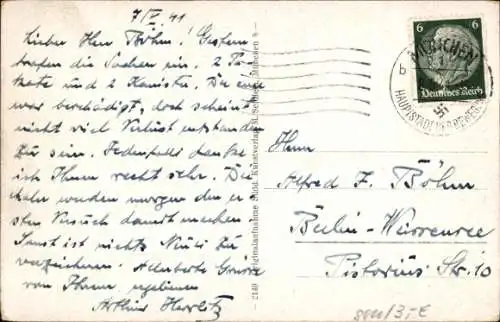 7/V. 41
Lieber Herr Böhm! Gestern
trafen die Sachen ein. 2 Pa-
kete und 2 Kanister. Die eine
war beschädigt, doch scheint
nicht viel Verlust entstanden
zu sein. Jedenfalls danke
ich Ihnen recht sehr. Die
werden morgen den er-
sten Versuch damit machen.
Sonst ist nichts Neues zu
verzeichnen. Grüsse
von Ihrem ergebenen
Arthur
Herrn
Alfred F. Böhm
Berlin-Weissensee
Pistorius Str. 10
6
Deutsches Reich
MÜNCHEN
b
HAUPTSTADT DER BEWEGUNG
2140 Originalaufnahme